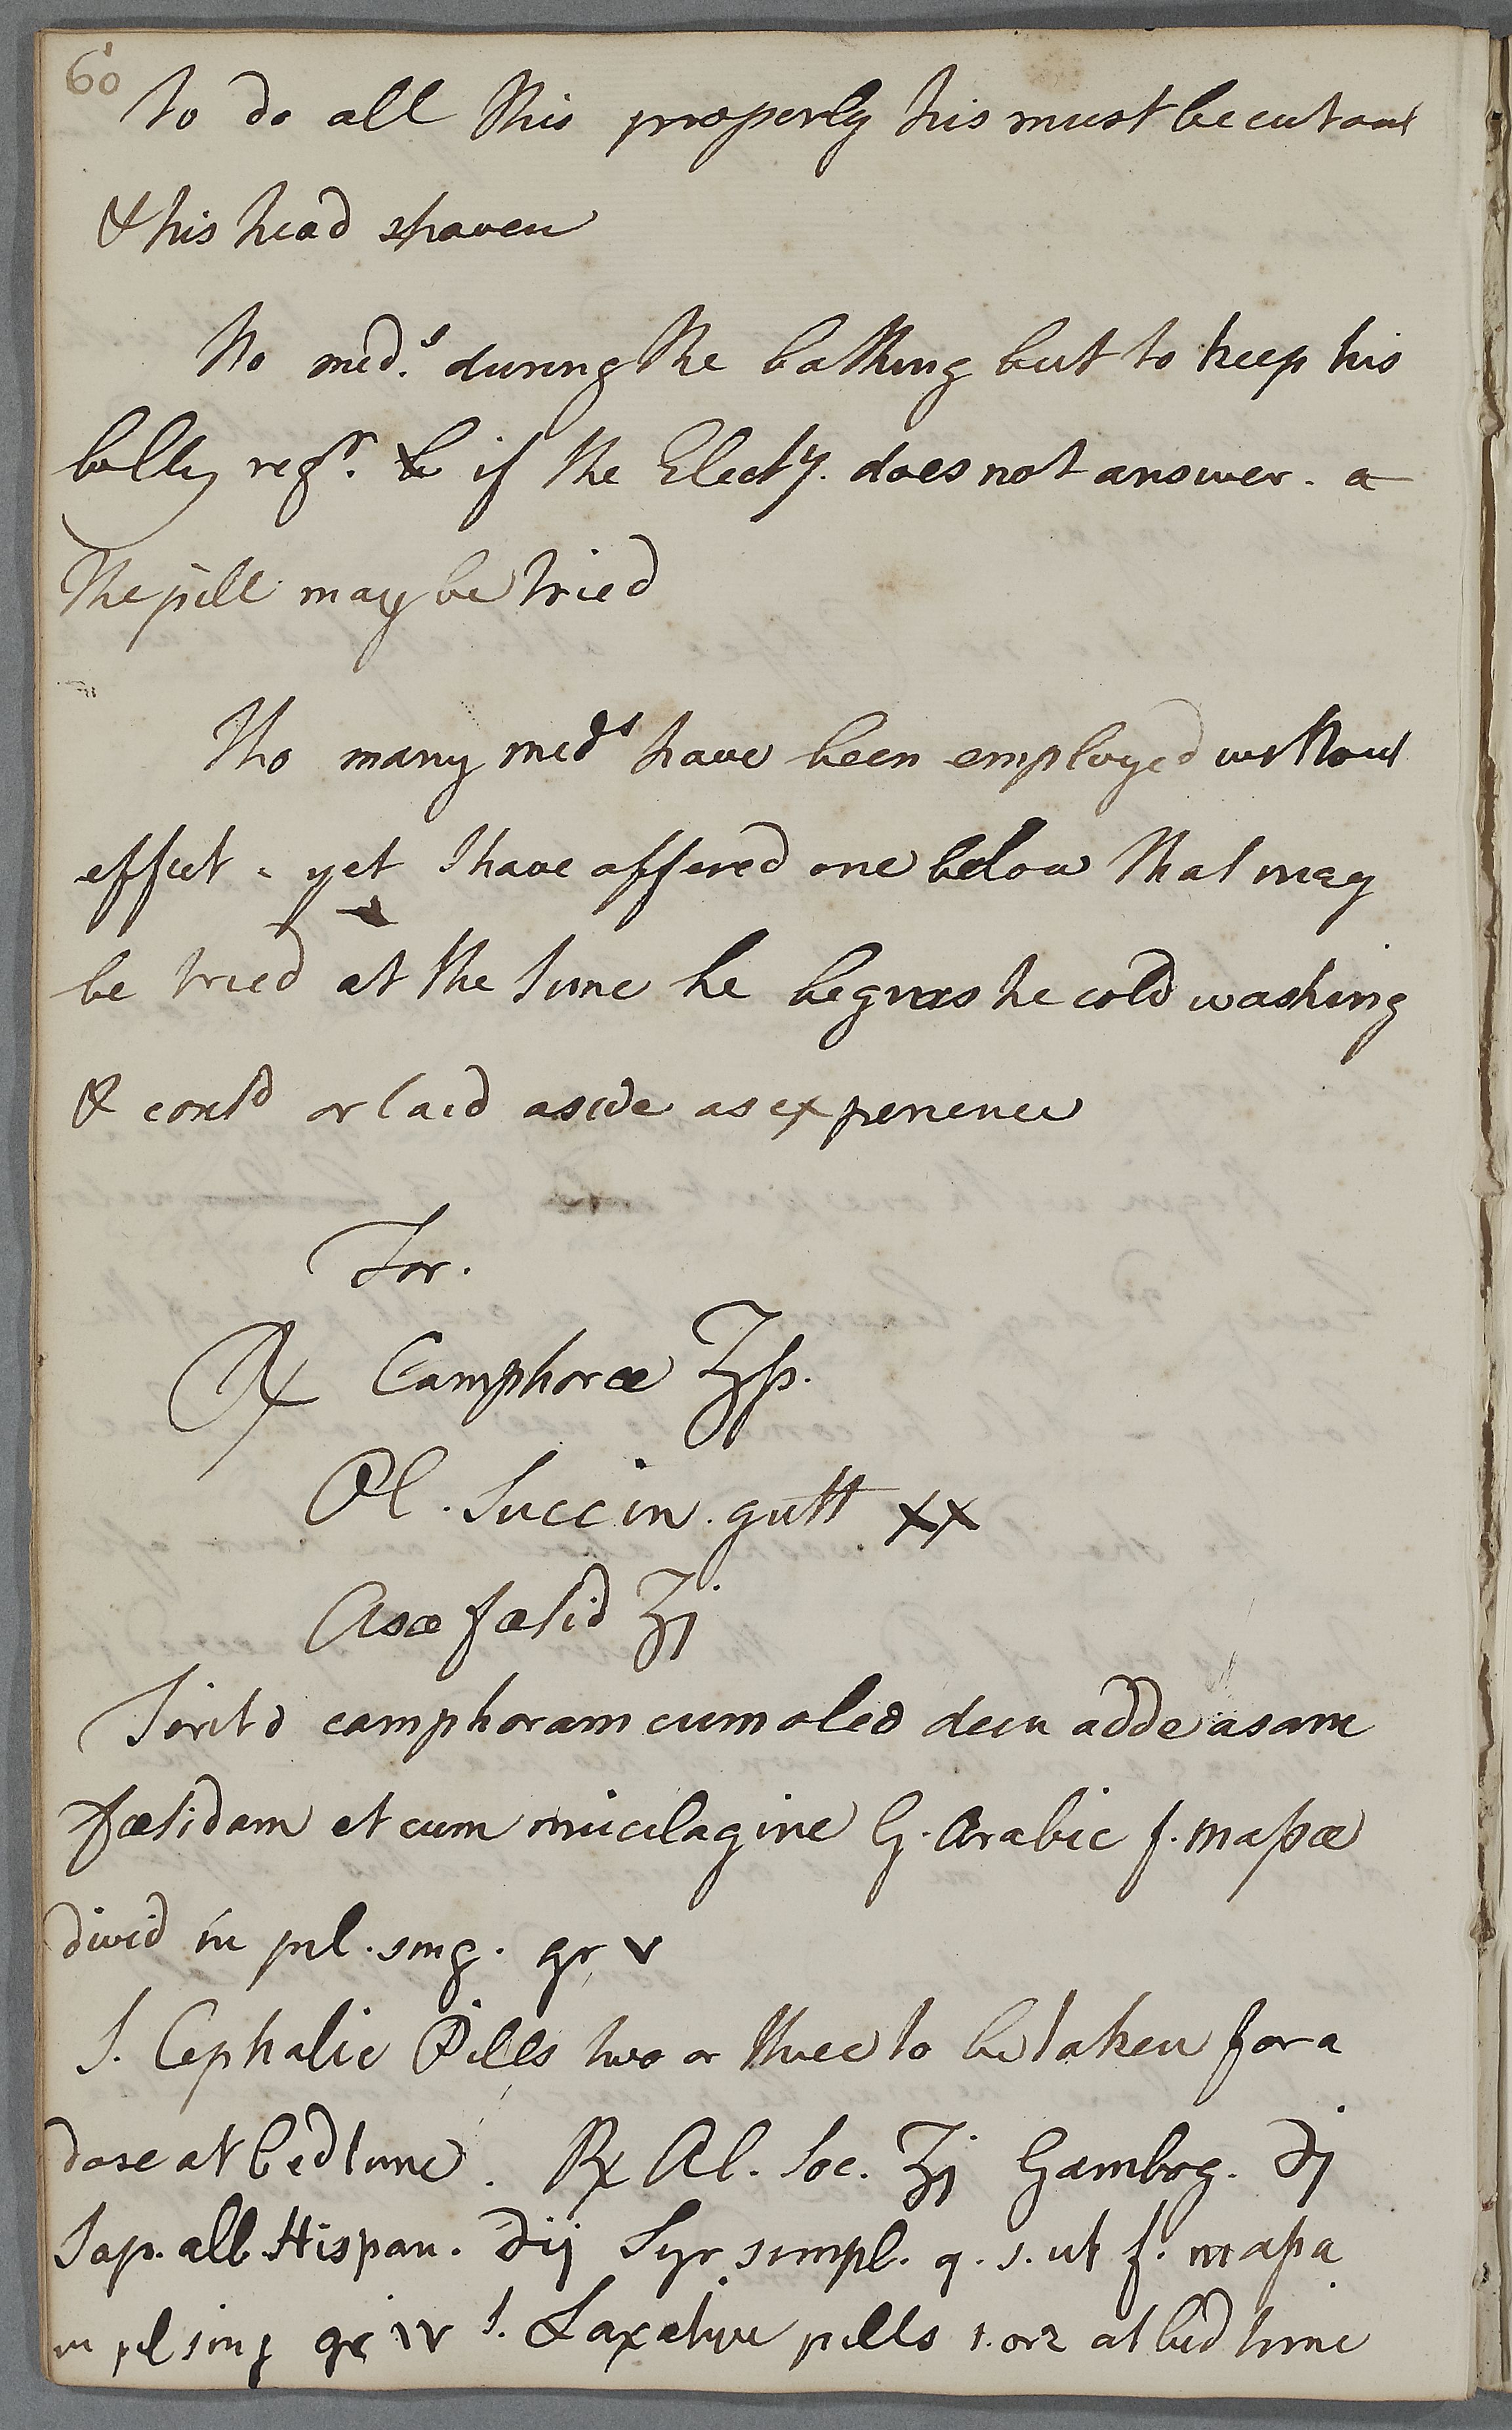 60
To do all this properly his must be cut out
& his head shaven
No med.s during the bathing but to keep his
belly regr. if the Electy. does not answer. a
the pill may be tried
Tho many meds have been employed without
effect. yet I have offered one below that may
be tried at the time he begins the cold washing
& contd or laid aside as experience
For.
℞ Camphoræ ʒſs.
Ol. Succin. gutt xx
Asæ fœtid ʒj
Terito camphoram cum oleo dein adde asam
fœtidam et cum mucilagine G. Arabic f. maſsæ
divid in pil. sing. gr v
S. Cephalic Pills two or three to be taken for a
dose at bedtime. ℞ Al. Soc. ʒj Gambog. ℈j
Sap. alb. Hispan. ℈ij Syr. simpl. q. s. ut f. maſsa
in pil sing gr iv S. Laxative pills 1. or 2 at bed time